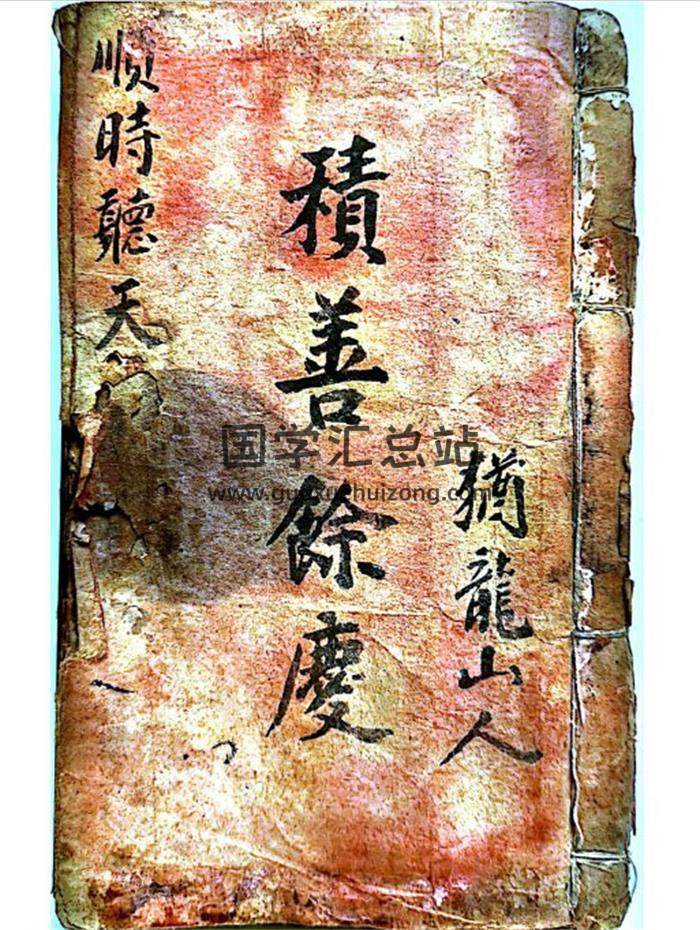 猶龍山人
積善餘慶
順時聽天
国学汇总站
www.guoxuehuizong.com